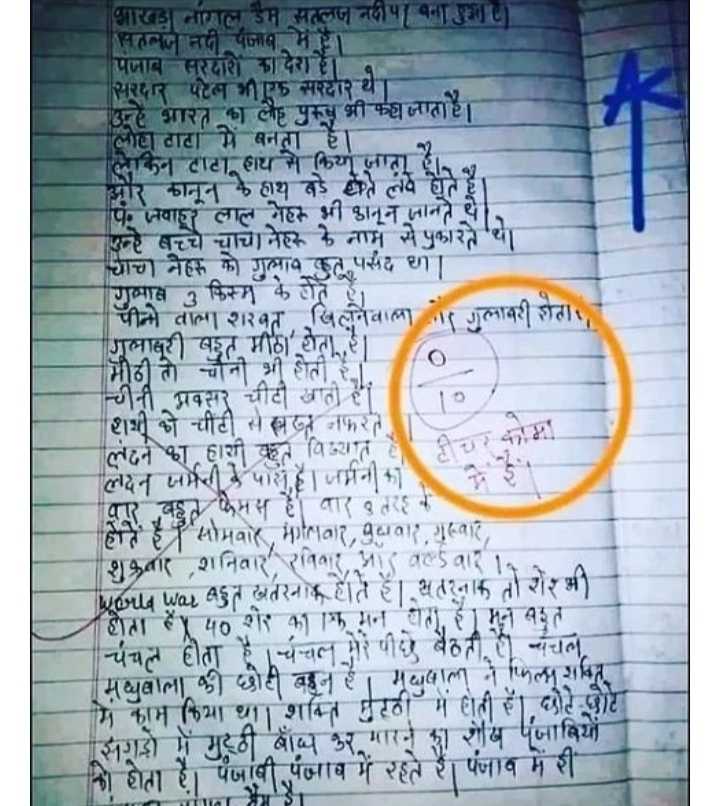 भाखड़ा नांगल डैम सतलुज नदी पर बना हुआ है।
सतलुज नदी पंजाब में है।
पंजाब सरदारों का देश है।
सरदार पटेल भी एक सरदार थे।
उन्हें भारत का लौह पुरुष भी कहा जाता है।
लोहा टाटा में बनता है।
लेकिन टाटा हाथ से किया जाता है।
और कानून के हाथ बडे लंबे होते है।
पं. जवाहर लाल नेहरू भी कानून जानते थे।
उन्हे बच्चे चाचा नेहरू के नाम से पुकारते थे।
चाचा नेहरू को गुलाब बहुत पसंद था।
गुलाब 3 किस्म के होते है।
पीने वाला शरबत, खिलनेवाला और गुलाबरी होता
गुलाबरी बहुत मीठा होता है।
मीठी तो चीनी भी होती है।
चीनी अक्सर चीटी खाती है।
हाथी को चींटी से बहुत नफरत
लंदन का हाथी बहुत विख्यात है
लंदन जर्मनी के पास है। जर्मनी का
वार बहुत फेमस है। वार 8 तरह के
होते है। सोमवार, मंगलवार, बुधवार, गुरूवार,
शुक्रवार, शनिवार, रविवार, और वर्ल्ड वार।
World War बहुत खतरनाक होते है। खतरनाक तो शेर भी
होता है। 40 शेर का एक मन होता है। मन बहुत
चंचल होता है। चंचल मेरे पीछे बैठती है। चंचल
मधुबाला की छोटी बहन है। मधुबाला ने फिल्म शक्ति
में काम किया था। शक्ति मुट्ठी में होती है। छोटे छोटे
झगड़ो में मुट्ठी बाँध कर मारने का शौख पंजाबियों
को होता है। पंजाबी पंजाब में रहते है। पंजाब में ही
0
10
टीचर कोमा
में है।
AK